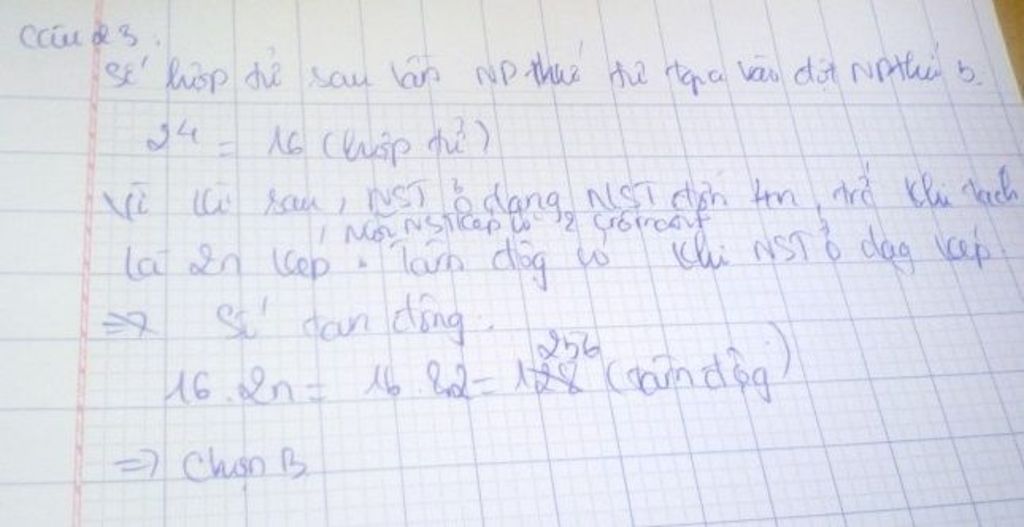 Câu 23.
Số hợp tử sau lần NP thứ tư tạo vào đợt NP thứ 5.
2⁴ = 16 (hợp tử)
Vì kì sau, NST ở dạng NST đơn 4n, trừ khi tách
, Mỗi NST kép có 2 crômatit
là 2n kép. Tâm động có khi NST ở dạg kép
=> Số tâm động.
256
16.2n = 16.8.2 = 128 (tâm độg)
=> Chọn B